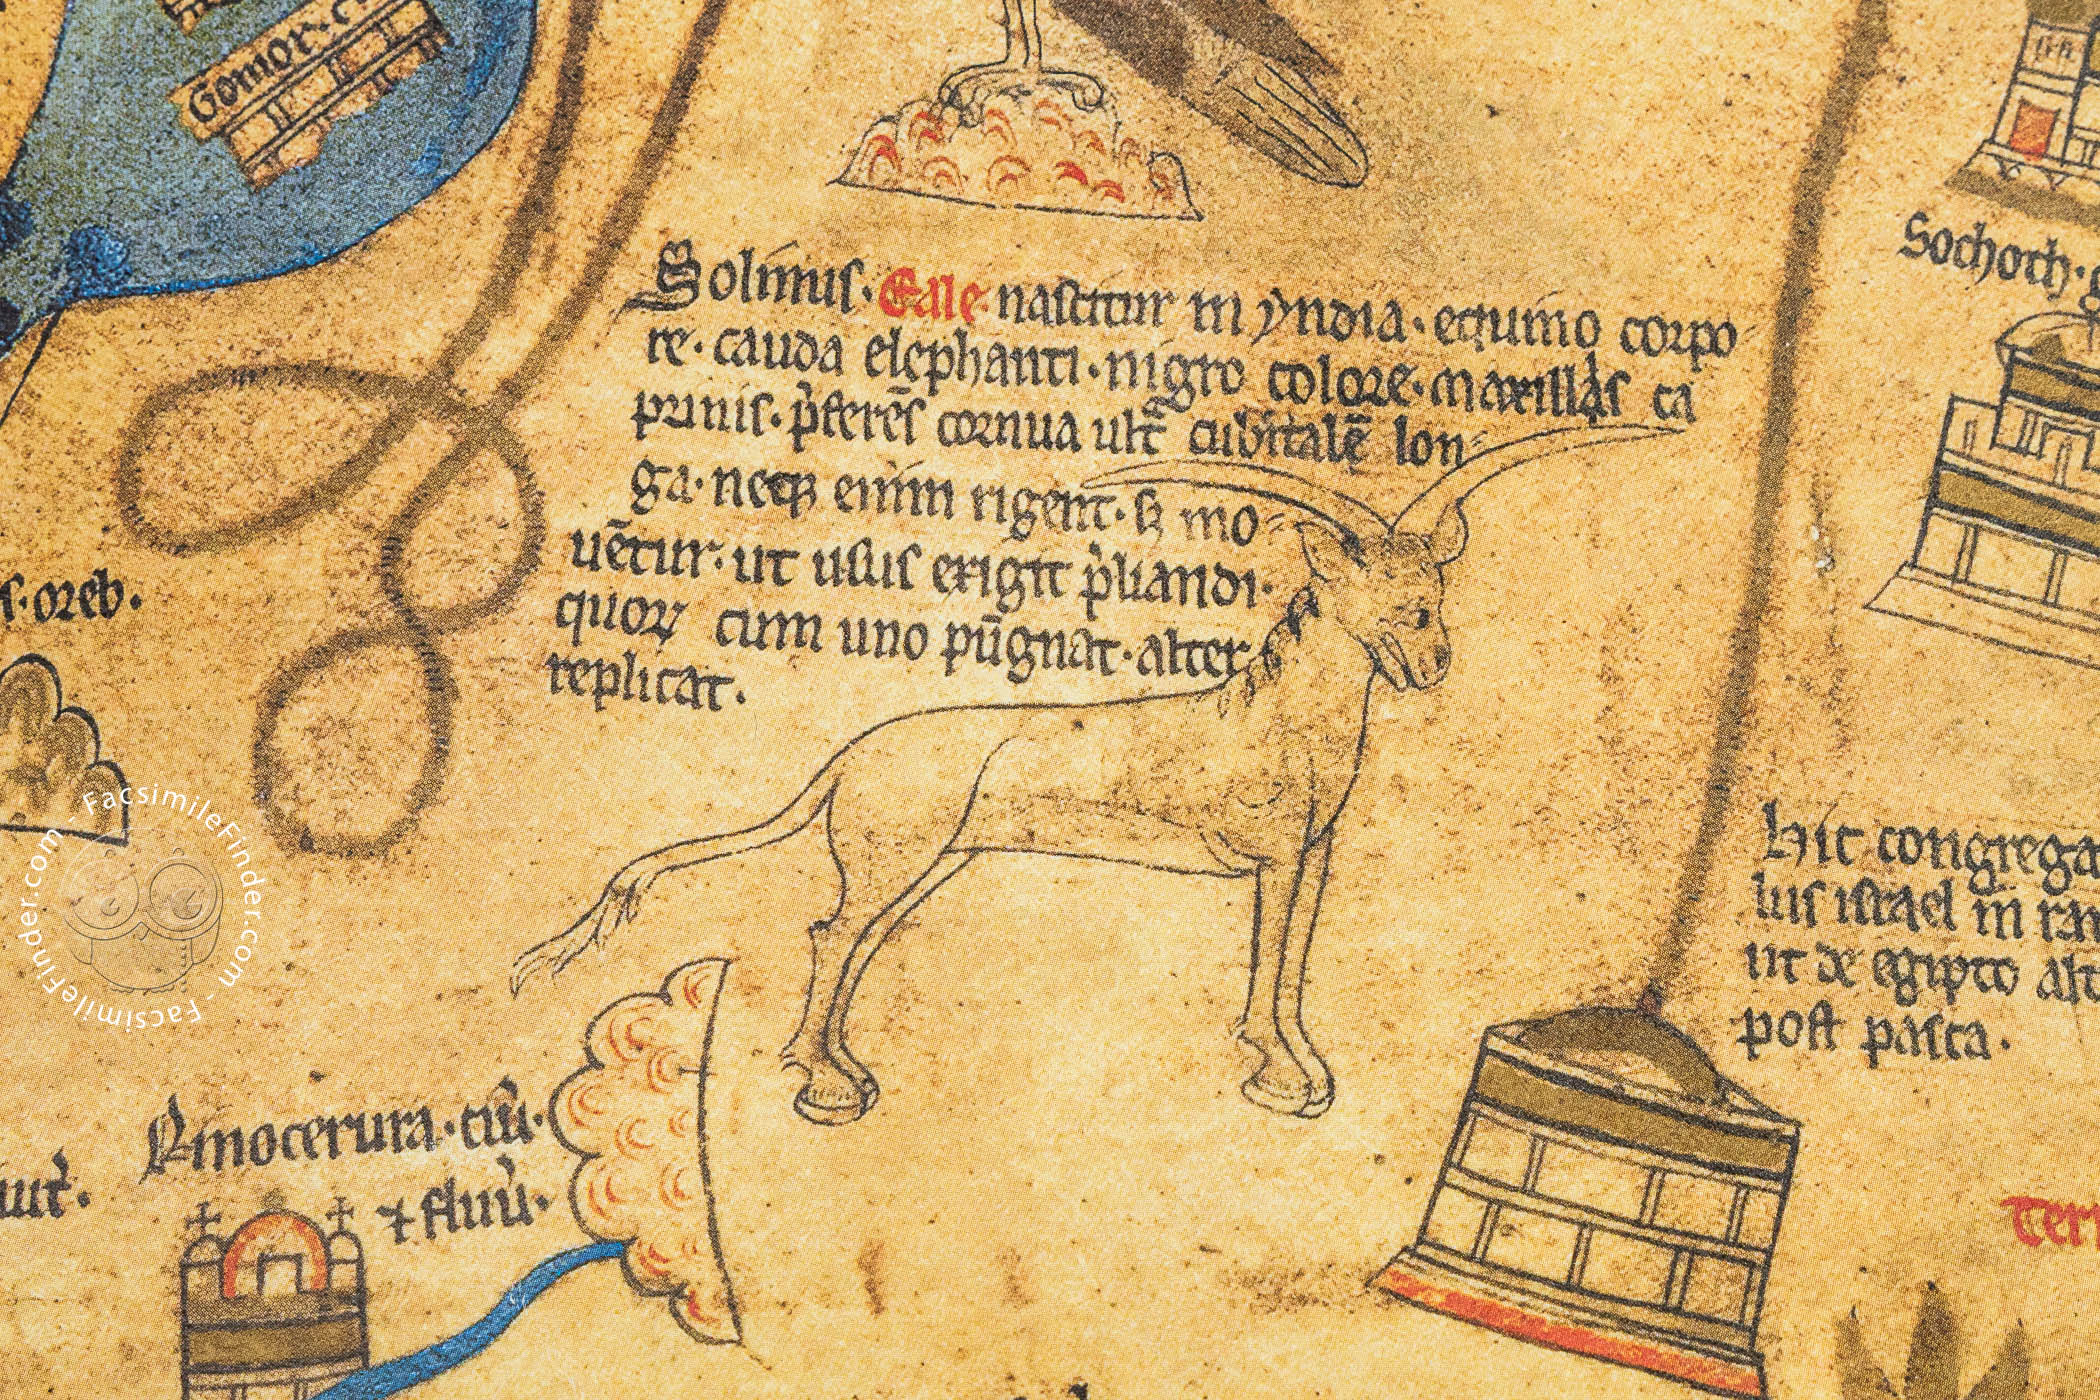 Gomor·c
Solinus· Eale· nascitur in yndia· equino corpo
re· cauda elephanti· nigro colore· maxillas ca
prinis· p̉ferēs cornua ult̃ cubitalē lon
ga· neqꝫ enim rigent· sꝫ mo
uētur· ut usus exigit p̉liandi·
quoꝝ cum uno pūgnat· alter
replicat.
Sochoth·
oreb·
Hic congrega
lus israel in ra
it de egipto alt
post pasca·
Rinocerura· ciuı̉·
⁊ fluuı̉·
Terr
FacsimileFinder.com - FacsimileFinder.com -